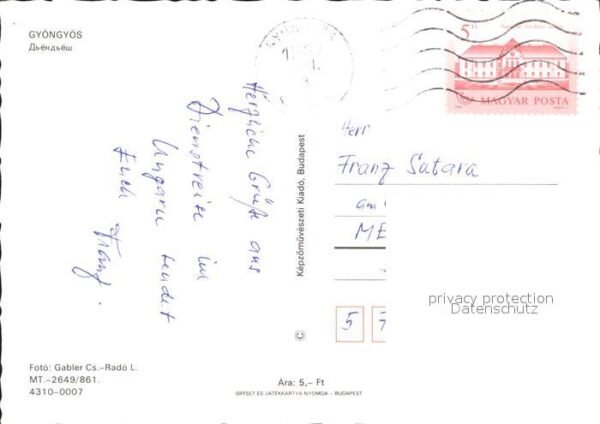 GYÖNGYÖS
Дьёндьёш
GYÖNGYÖS
5 Ft
MAGYAR POSTA
Herzliche Grüße aus
Dienstreise im
Ungarn sendet
Euch
Franz.
Képzőművészeti Kiadó, Budapest
©
Herr
Franz Satara
am
ME
5 7
privacy protection
Datenschutz
Fotó: Gabler Cs.–Radó L.
MT.–2649/861.
4310-0007
Ára: 5,– Ft
OFFSET ÉS JÁTÉKKÁRTYA NYOMDA – BUDAPEST